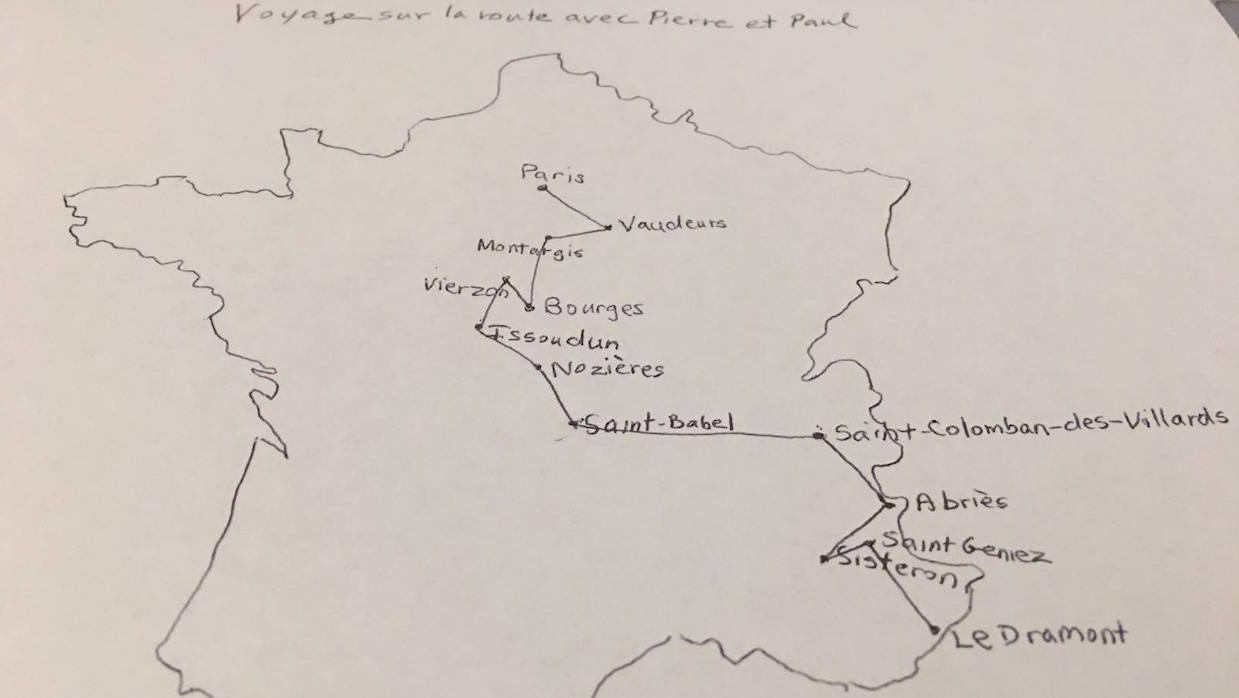 Voyage sur la route avec Pierre et Paul
Paris
Vaudeurs
Montargis
Vierzon
Bourges
Issoudun
Nozières
Saint-Babel
Saint-Colomban-des-Villards
Abriès
Saint Geniez
Sisteron
Le Dramont